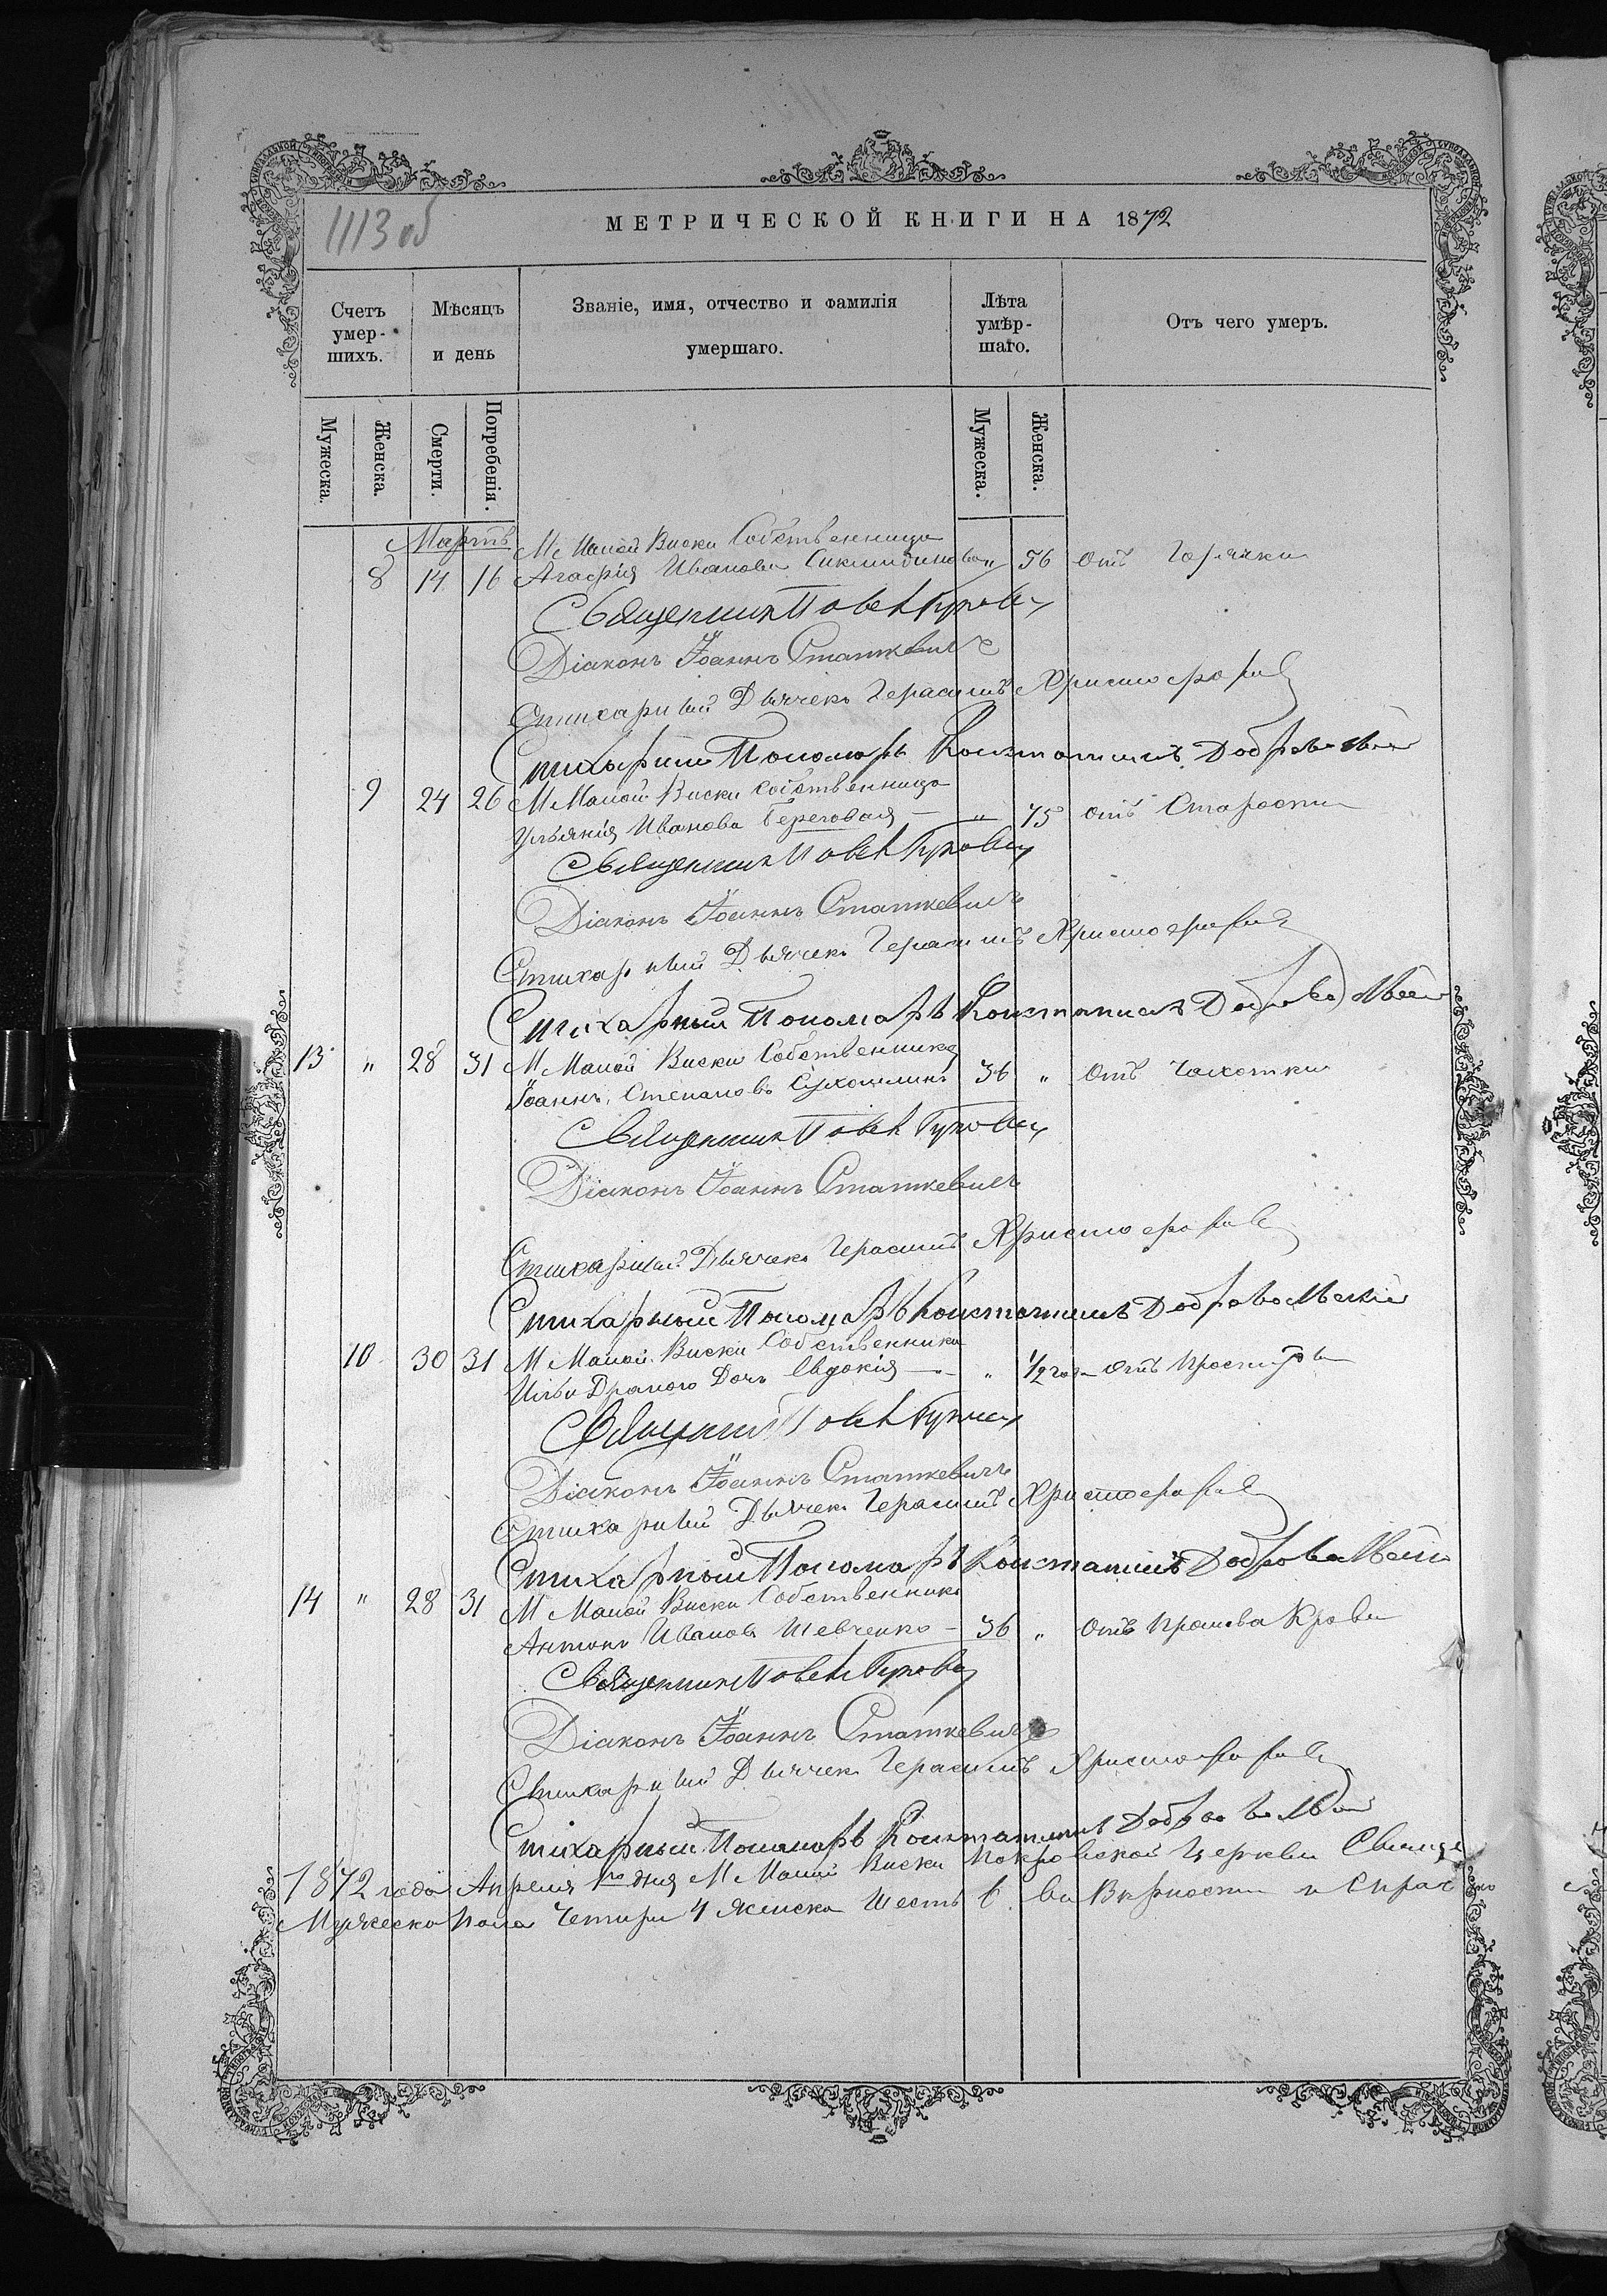 1113 об
МЕТРИЧЕСКОЙ КНИГИ НА 1872
Счетъ умер-шихъ.
Мѣсяцъ и день
Званіе, имя, отчество и фамилія умершаго.
Лѣта умѣр-шаго.
Отъ чего умеръ.
Мужеска. Женска. Смерти. Погребенія. Мужеска. Женска.
Мартъ М Малой Виски Собственница
8 14 16 Агафія Иванова „ 56 отъ Горячки
Священник Павел
Діаконъ Іоаннъ Статкевичъ
Стихарный Дьячекъ Герасимъ Христофоров
Стихарный Пономарь Константинъ Добровольскій
9 24 26 М Малой Виски собственница
Ульянія Иванова Береговая — „ 75 отъ Старости
Священник Павел
Діаконъ Іоаннъ Статкевичъ
Стихарный Дьячекъ Герасимъ Христофоров
Стихарный Пономарь Константинъ Добровольскій
13 „ 28 31 М Малой Виски Собственникъ
Іоаннъ Степановъ 36 „ Отъ Чахотки
Священник Павел
Діаконъ Іоаннъ Статкевичъ
Стихарный Дьячекъ Герасимъ Христофоров
Стихарный Пономарь Константинъ Добровольскій
10 30 31 М Малой Виски Собственника
Ильи Драного Дочь Евдокія — „ 1/2 года отъ Простуды
Священник Павел
Діаконъ Іоаннъ Статкевичъ
Стихарный Дьячекъ Герасимъ Христофоров
Стихарный Пономарь Константинъ Добровольскій
14 „ 28 31 М Малой Виски Собственникъ
Антонъ Ивановъ Шевченко — 36 „ Отъ Крови
Священник Павел
Діаконъ Іоаннъ Статкевичъ
Стихарный Дьячекъ Герасимъ Христофоров
Стихарный Пономарь Константинъ Добровольскій
1872 года Апреля 1го дня М Малой Виски Покровской Церкви
Мужеска пола Четыри 4 Женска Шесть 6. Въ Верности и